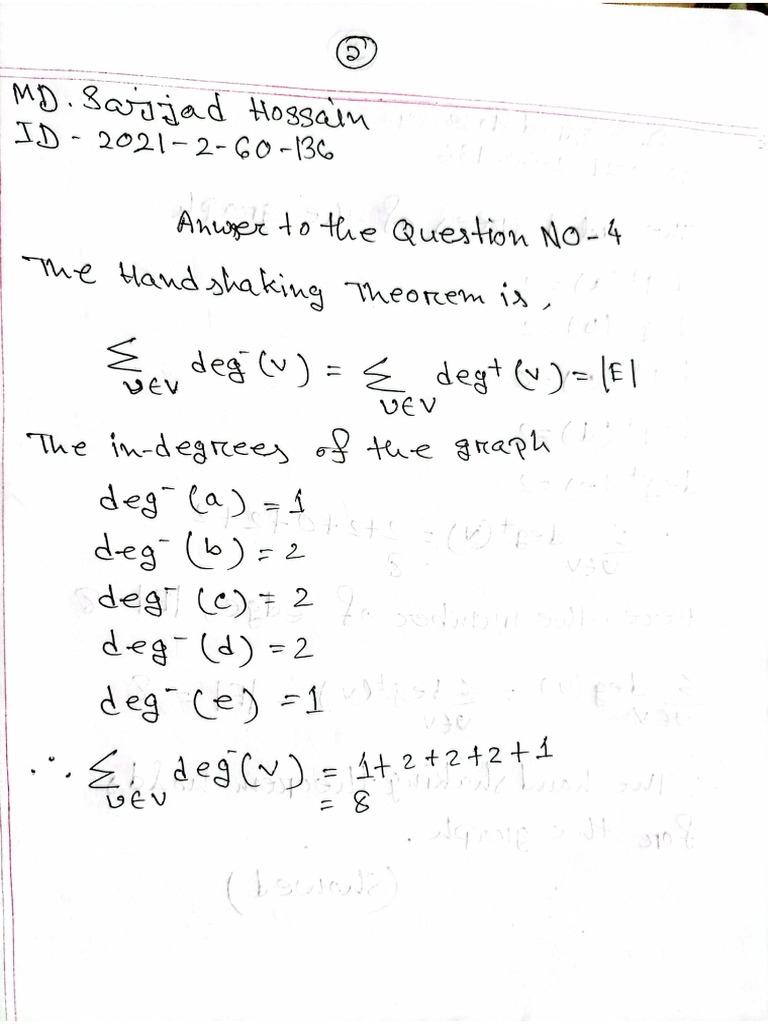 2
MD. Sajjad Hossain
ID - 2021-2-60-136
Anwser to the Question NO-4
The Handshaking Theorem is,
∑ deg⁻(v) = ∑ deg⁺(v) = |E|
v∈V v∈V
The in-degrees of the graph
deg⁻(a) = 1
deg⁻(b) = 2
deg⁻(c) = 2
deg⁻(d) = 2
deg⁻(e) = 1
∴ ∑ deg⁻(v) = 1+2+2+2+1
v∈V = 8